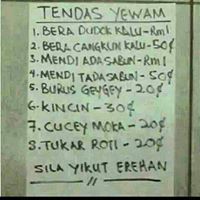 TENDAS YEWAM
1. BERA DUDOK KALU - RM1
2. BERA CANGKUN KALU - 50¢
3. MENDI ADA SABUN - RM1
4. MENDI TADA SABUN - 50¢
5. BURUS GEYGEY - 20¢
6. KINCIN - 30¢
7. CUCEY MOKA - 20¢
8. TUKAR ROTI - 20¢
SILA YIKUT EREHAN